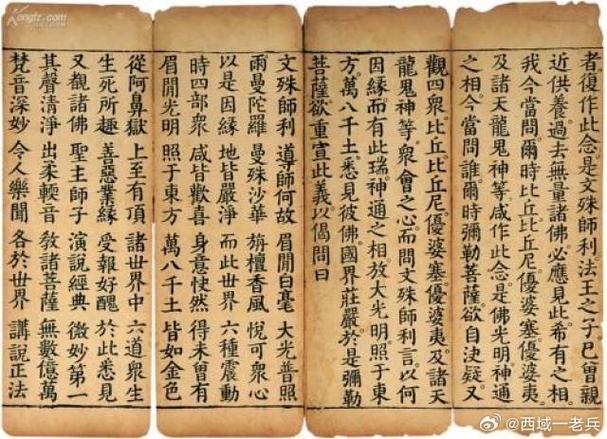 者復作此念是文殊師利法王之子已曾親
近供養過去無量諸佛必應見此希有之相
我今當問爾時比丘比丘尼優婆塞優婆夷
及諸天龍鬼神等咸作此念是佛光明神通
之相今當問誰爾時彌勒菩薩欲自決疑又
觀四衆比丘比丘尼優婆塞優婆夷及諸天
龍鬼神等衆會之心而問文殊師利言以何
因緣而有此瑞神通之相放大光明照于東
方萬八千土悉見彼佛國界莊嚴於是彌勒
菩薩欲重宣此義以偈問曰
文殊師利 導師何故 眉閒白毫 大光普照
雨曼陀羅 曼殊沙華 栴檀香風 悅可衆心
以是因緣 地皆嚴淨 而此世界 六種震動
時四部衆 咸皆歡喜 身意快然 得未曾有
眉閒光明 照于東方 萬八千土 皆如金色
從阿鼻獄 上至有頂 諸世界中 六道衆生
生死所趣 善惡業緣 受報好醜 於此悉見
又覩諸佛 聖主師子 演說經典 微妙第一
其聲清淨 出柔輭音 敎諸菩薩 無數億萬
梵音深妙 令人樂聞 各於世界 講說正法
@西域一老兵